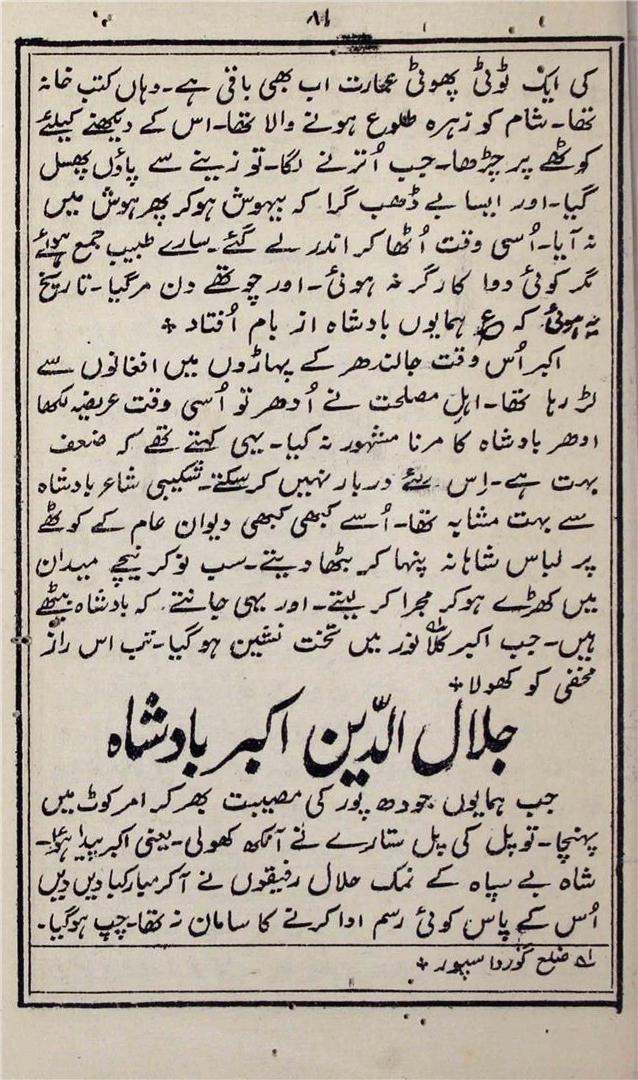 ۸۱
کی ایک ٹوٹی پھوٹی عمارت اب بھی باقی ہے۔ وہاں کتب خانہ
تھا۔ شام کو زہرہ طلوع ہونے والا تھا۔ اس کے دیکھنے کیلئے
کوٹھے پر چڑھا۔ جب اُترنے لگا۔ تو زینے سے پاؤں پھسل
گیا۔ اور ایسا بے ڈھب گرا کہ بیہوش ہوکر پھر ہوش میں
نہ آیا۔ اُسی وقت اُٹھا کر اندر لے گئے۔ سارے طبیب جمع ہوئے
مگر کوئی دوا کارگر نہ ہوئی۔ اور چوتھے دن مرگیا۔ تاریخ
یہ ہوئی کہ ع ہمایوں بادشاہ از بام اُفتاد +
اکبر اُس وقت جالندھر کے پہاڑوں میں افغانوں سے
لڑ رہا تھا۔ اہلِ مصلحت نے اُدھر تو اُسی وقت عریضہ لکھا
ادھر بادشاہ کا مرنا مشہور نہ کیا۔ یہی کہتے تھے کہ ضعف
بہت ہے۔ اِس لئے دربار نہیں کرسکتے۔ شکیبی شاعر بادشاہ
سے بہت مشابہ تھا۔ اُسے کبھی کبھی دیوان عام کے کوٹھے
پر لباس شاہانہ پنہا کر بٹھا دیتے۔ سب نوکر نیچے میدان
میں کھڑے ہوکر مجرا کر لیتے۔ اور یہی جانتے۔ کہ بادشاہ بیٹھے
ہیں۔ جب اکبر کلانور۱؎ میں تخت نشین ہوگیا۔ تب اس راز
مخفی کو کھولا +
جلال الدّین اکبر بادشاہ
جب ہمایوں جودھ پور کی مصیبت بھر کر امرکوٹ میں
پہنچا۔ تو پل کی پل ستارے نے آنکھ کھولی۔ یعنی اکبر پیدا ہوا۔
شاہ بے سپاہ کے نمک حلال رفیقوں نے آکر مبارکبادیں دیں
اُس کے پاس کوئی رسم ادا کرنے کا سامان نہ تھا۔ چپ ہوگیا۔
۱؎ ضلع گورداسپور +